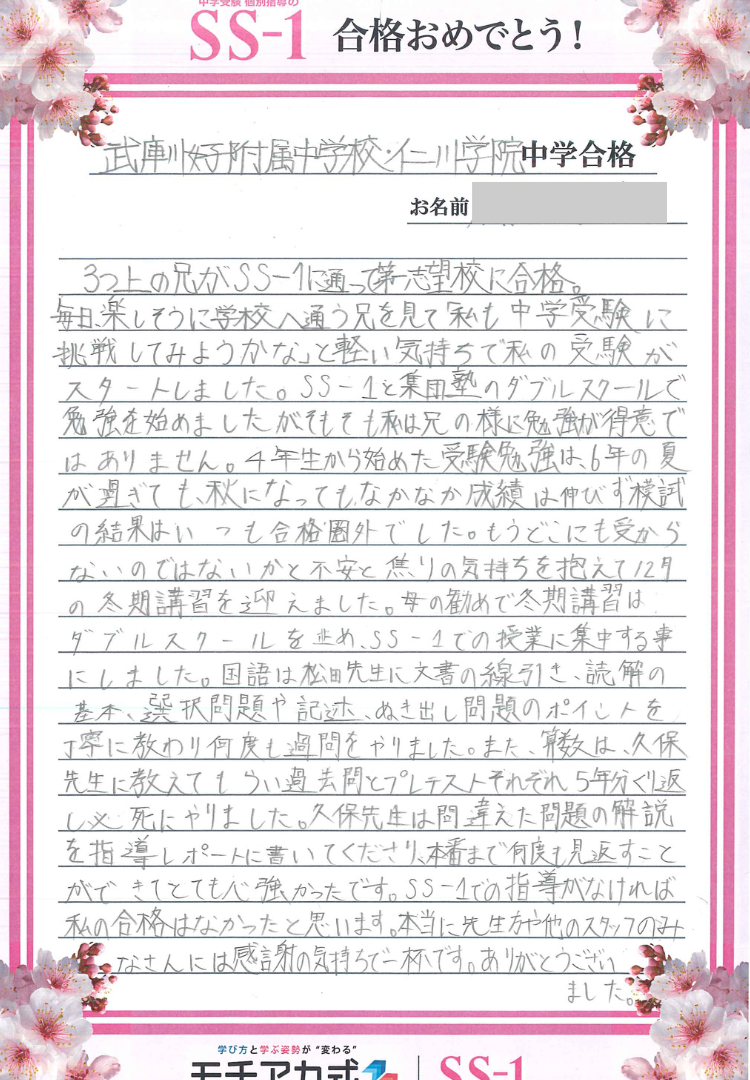 中学受験 個別指導の
SS-1 合格おめでとう！
武庫川女子附属中学校・仁川学院中学合格
お名前
3つ上の兄がSS-1に通って第一志望校に合格。
毎日、楽しそうに学校へ通う兄を見て「私も中学受験に
挑戦してみようかな」と軽い気持ちで私の受験が
スタートしました。SS-1と集団塾のダブルスクールで
勉強を始めましたがそもそも私は兄の様に勉強が得意で
はありません。4年生から始めた受験勉強は、6年の夏
が過ぎても、秋になっても、なかなか成績は伸びず模試
の結果はいつも合格圏外でした。もうどこにも受から
ないのではないかと不安と焦りの気持ちを抱えて12月
の冬期講習を迎えました。母の勧めで冬期講習は
ダブルスクールを止め、SS-1での授業に集中する事
にしました。国語は松田先生に文書の線引き、読解の
基本、選択問題や記述、ぬき出し問題のポイントを
丁寧に教わり何度も過問をやりました。また、算数は、久保
先生に教えてもらい過去問とプレテストそれぞれ5年分くり返
し必死にやりました。久保先生は間違えた問題の解説
を指導レポートに書いてくださり、本番まで何度も見返すこと
ができてとても心強かったです。SS-1での指導がなければ
私の合格はなかったと思います。本当に先生方や他のスタッフのみ
なさんには感謝の気持ちで一杯です。ありがとうござい
ました。
学び方と学ぶ姿勢が“変わる”
モチアカ式 SS-1